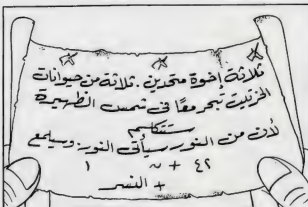 ثلاثة إخوة متحدين. ثلاثة من حيوانات
الخرتيت تبحر معًا في شمس الظهيرة
ستتكلم
لأن من النور سيأتى النور وسيلمع
+ النسر